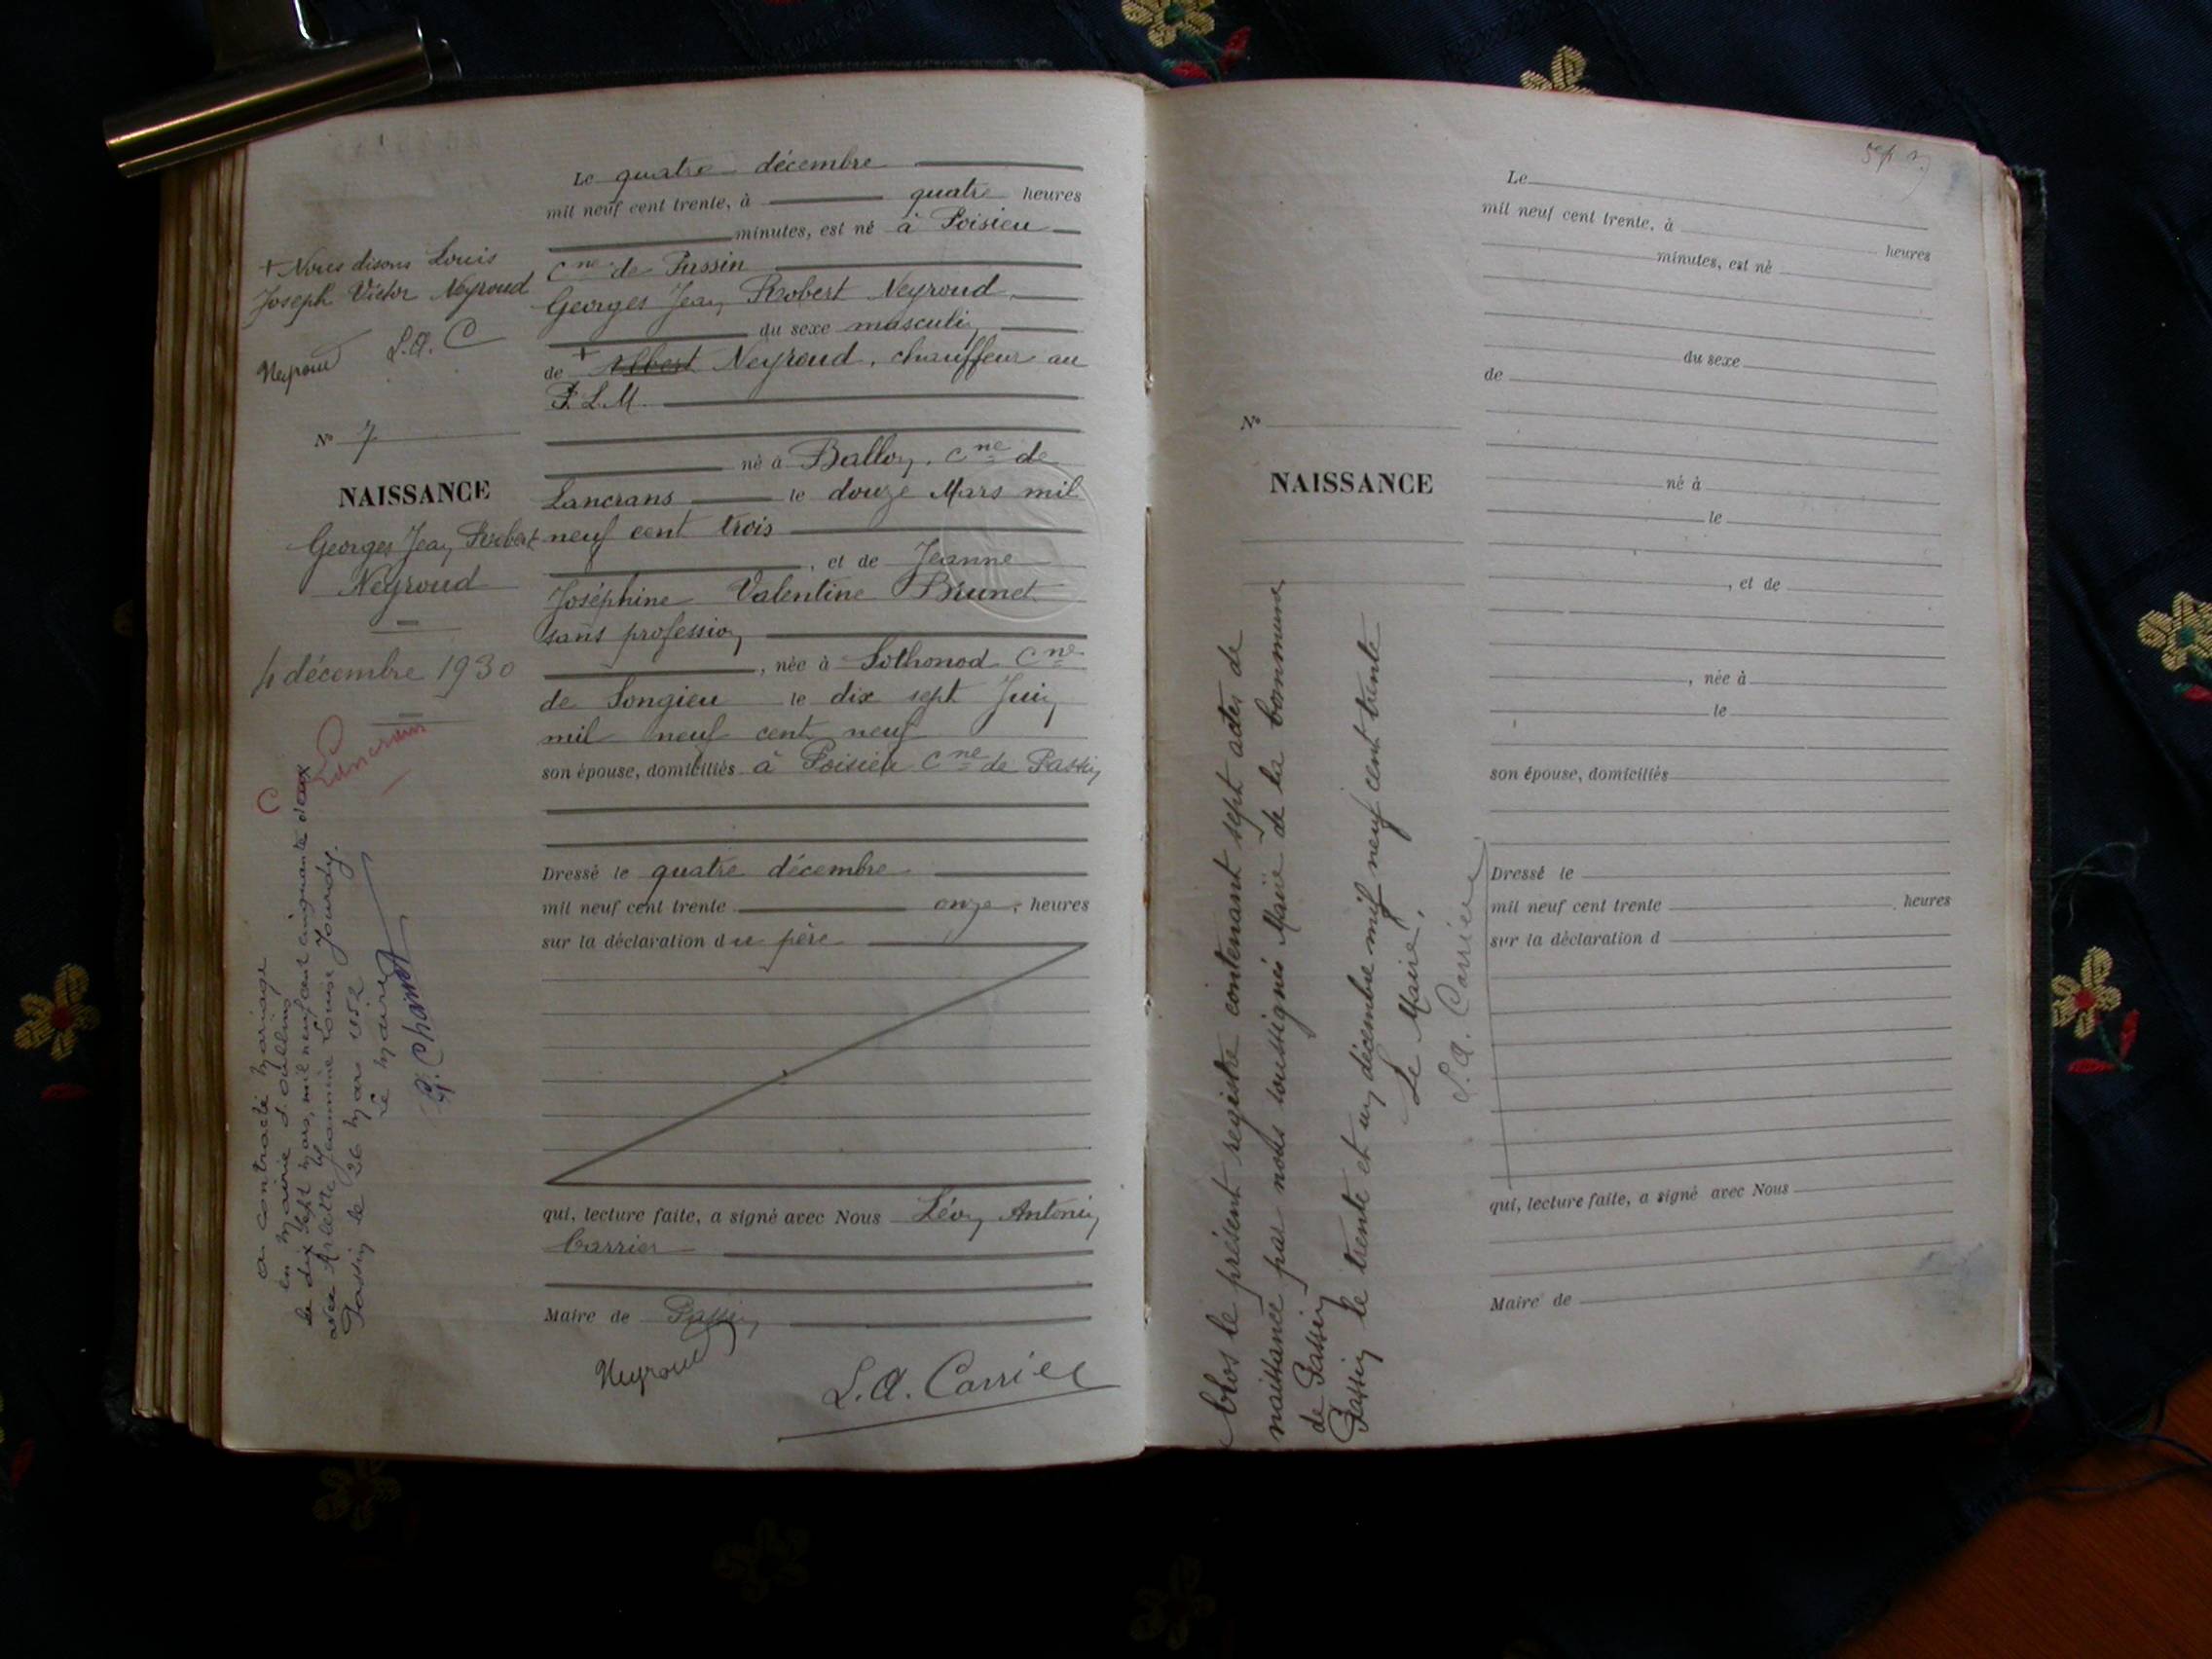 + Nous disons Louis
Joseph Victor Neyroud
Neyroud L. A. C
N° 7
NAISSANCE
Georges Jean Robert
Neyroud
4 décembre 1930
Lancrans
C
a contracté mariage
en Mairie d'Oullins
le dix sept Mars, mil neuf cent cinquante deux
avec Arlette Jeannine Louise Jourdy.
Passin le 26 Mars 1952
le Maire
Le quatre décembre
mil neuf cent trente, à quatre heures
minutes, est né à Poisieu
Cne de Passin
Georges Jean Robert Neyroud
du sexe masculin
de + Albert Neyroud, chauffeur au
P. L. M.
né à Ballon, Cne de
Lancrans le douze Mars mil
neuf cent trois
, et de Jeanne
Joséphine Valentine Brunet
sans profession
, née à Sothonod Cne
de Songieu le dix sept Juin
mil neuf cent neuf
son épouse, domiciliés à Poisieu Cne de Passin
Dressé le quatre décembre
mil neuf cent trente onze, heures
sur la déclaration du père
qui, lecture faite, a signé avec Nous Léon Antonin
Carrier
Maire de Passin
Neyroud
L. A. Carrier
N°
NAISSANCE
Clos le présent registre contenant sept actes de
naissance par nous soussigné Maire de la Commune
de Passin
Passin le trente et un décembre mil neuf cent trente
Le Maire,
L. A. Carrier
Le
mil neuf cent trente, à heures
minutes, est né
du sexe
de
né à
le
, et de
, née à
le
son épouse, domiciliés
Dressé le
mil neuf cent trente heures
sur la déclaration d
qui, lecture faite, a signé avec Nous
Maire de